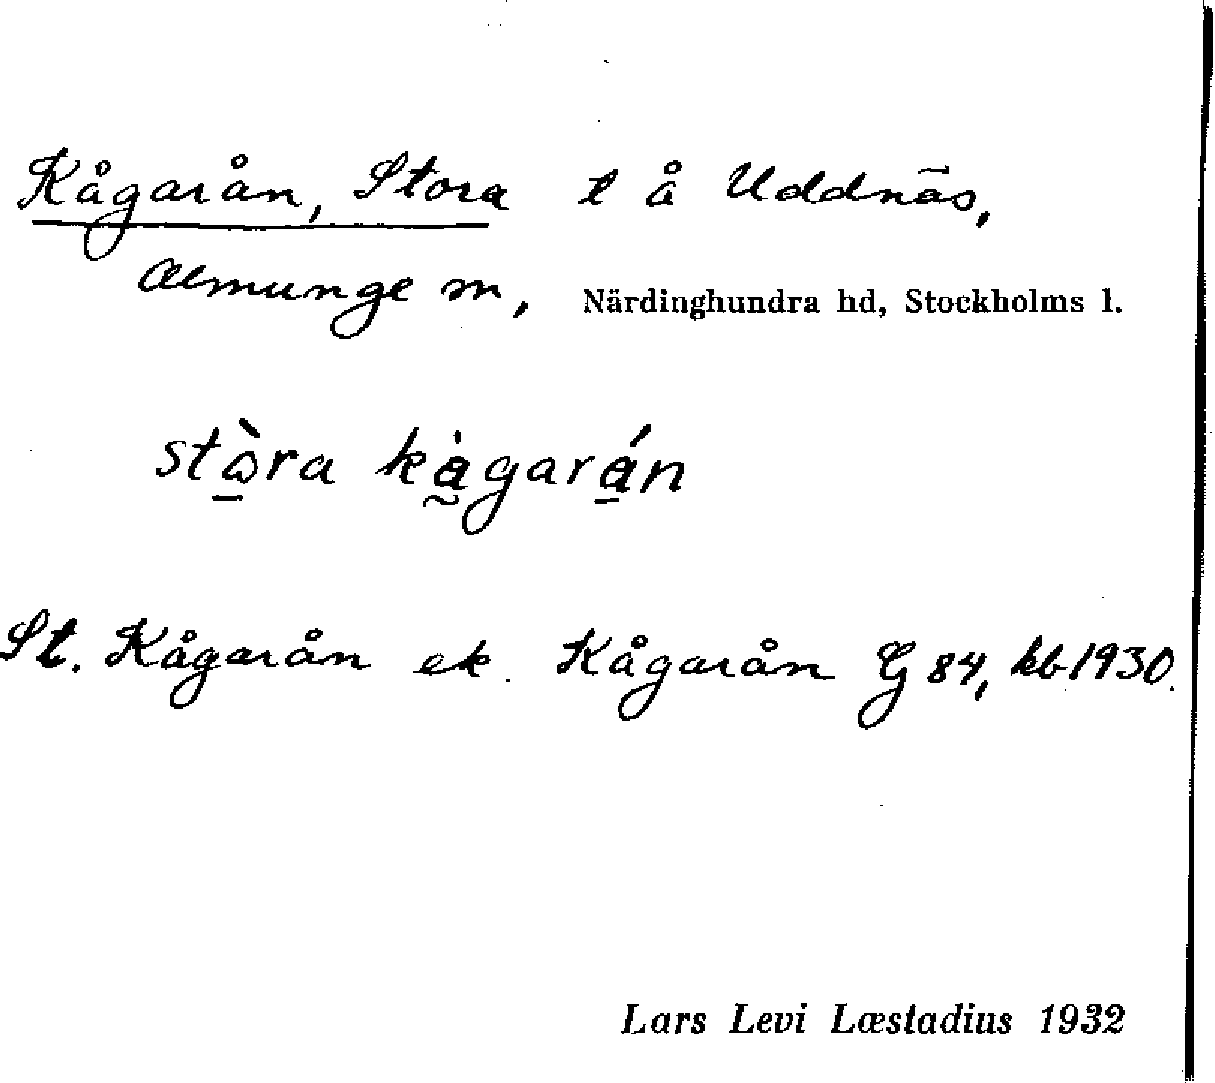 Kågarån, Stora t å Uddnäs,
Almunge sn, Närdinghundra hd, Stockholms l.
stὼra kàgarán
St. Kågarån ek. Kågarån G 84, kb 1930.
Lars Levi Læstadius 1932